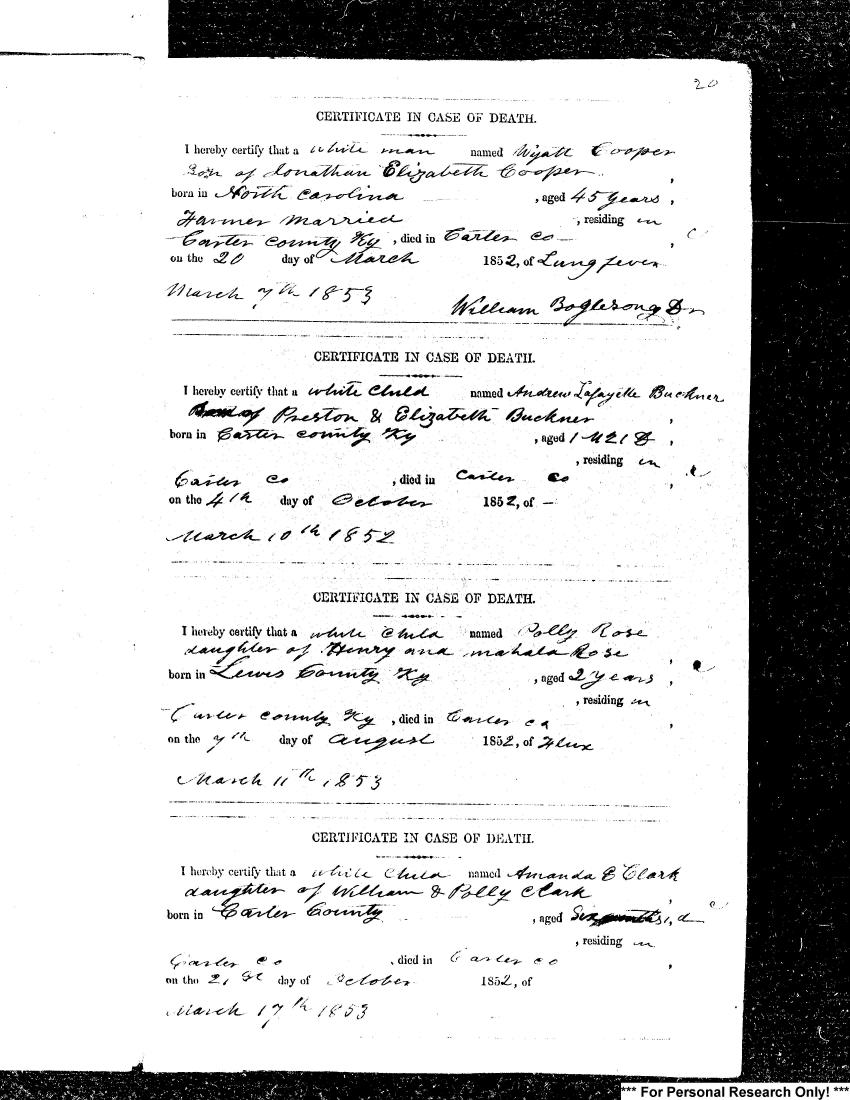 20
CERTIFICATE IN CASE OF DEATH.
I hereby certify that a white man named Wyatt Cooper
Son of Jonathan Elizabeth Cooper ,
born in North Carolina , aged 45 years ,
Farmer Married , residing in
Carter County Ky , died in Carter Co ,
on the 20 day of March 1852, of Lung fever
March 7th 1853
William
CERTIFICATE IN CASE OF DEATH.
I hereby certify that a white Child named Andrew Lafayette Buckner
of Preston & Elizabeth Buckner ,
born in Carter County Ky , aged 1 M 21 D ,
, residing in
Carter Co , died in Carter Co ,
on the 4th day of October 1852, of —
March 10th 1852
CERTIFICATE IN CASE OF DEATH.
I hereby certify that a white Child named Polly Rose
daughter of Henry and mahala Rose ,
born in Lewis County Ky , aged 2 years ,
, residing in
Carter County Ky , died in Carter Co ,
on the 7th day of August 1852, of Flux
March 11th 1853
CERTIFICATE IN CASE OF DEATH.
I hereby certify that a white Child named Amanda E Clark
daughter of William & Polly Clark ,
born in Carter County , aged
, residing in
Carter Co , died in Carter Co ,
on the 21st day of October 1852, of
March 17th 1853
*** For Personal Research Only! ***